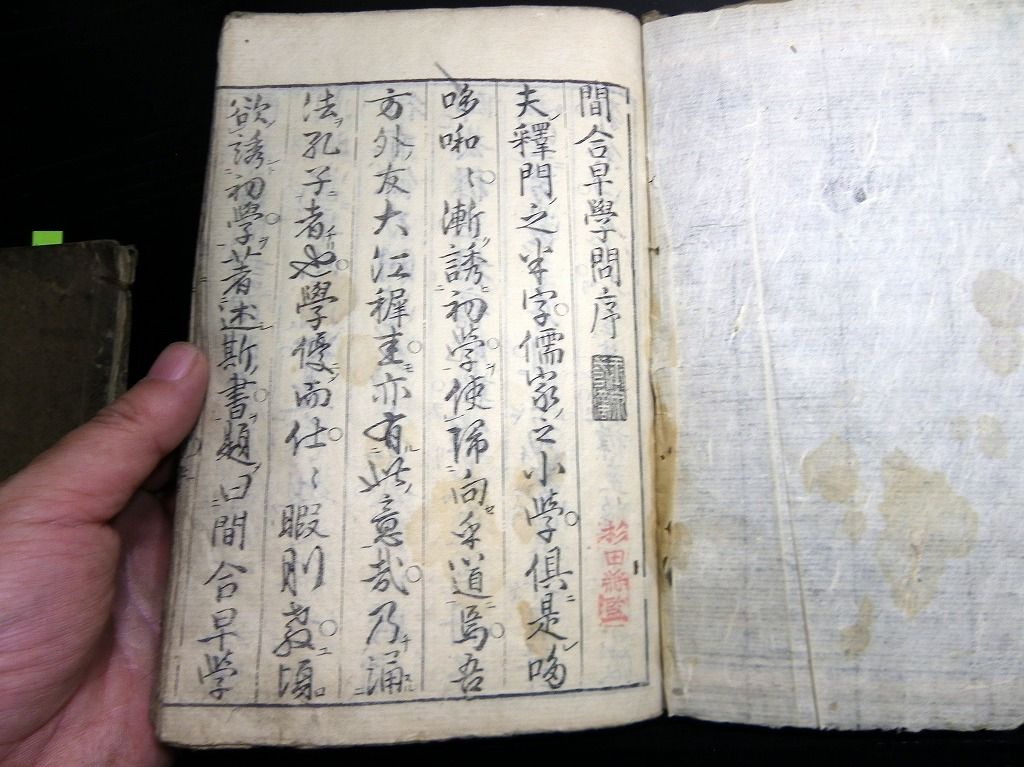 間合早學問序
夫釋門之半字儒家之小學俱是哆
哆啝〻漸誘初學使歸向乎道焉吾
方外友大江穉圭亦有此意哉乃誦
法孔子者也學優而仕〻暇則教頃
欲誘初學著述斯書題曰間合早學
杉田